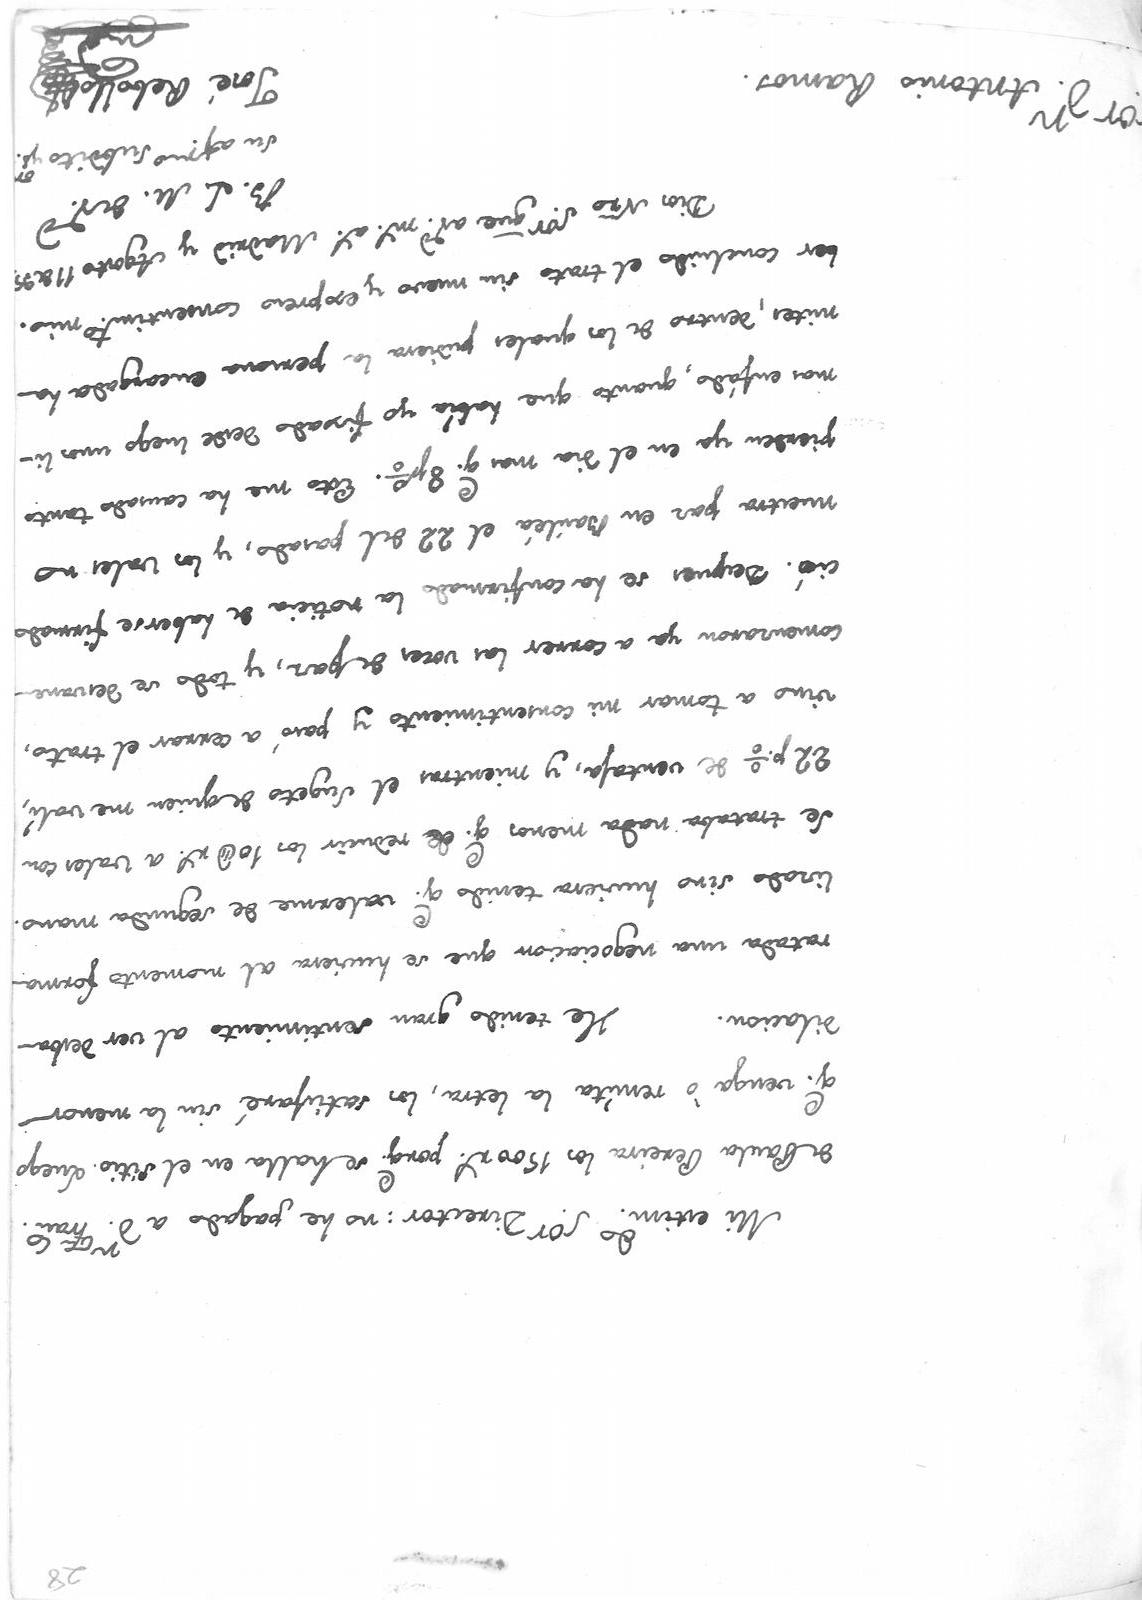 28
Mi estim.do Sor Director: no he pagado a D.n Fran.co
de Paula Pereira los 1500 r.s porq.e se halla en el Sitio. Luego
q.e venga ò remita la letra, los satisfaré sin la menor
dilacion. He tenido gran sentimiento al ver desba-
ratada una negociacion que se huviera al momento forma-
lizado sino huviera tenido q.e valerme de segunda mano.
Se trataba nada menos q.e de reducir los 10@ r.s a vales con
22 p.% de ventaja, y mientras el sugeto de quien me valí,
vino a tomar mi consentimiento y pasó a cerrar el trato,
comenzaron ya a correr las voces de paz, y todo se desvane-
ció. Despues se ha confirmado la noticia de haberse firmado
nuestra paz en Basilèa el 22 del pasado, y los vales no
pierden ya en el dia mas q.e 8 p%. Esto me ha causado tanto
mas enfado, quanto que habia yo fixado desde luego unos li-
mites, dentro de los quales pudiera la persona encargada ha-
ber concluido el trato sin nuevo y expreso consentim.to mio.
Dios Nro S.or que a V. m.s a.s Madrid y Agosto 11 de 95.
B. L. M. de V.
su af.mo subdito y
José Rebollo
or D.n Antonio Ramos.